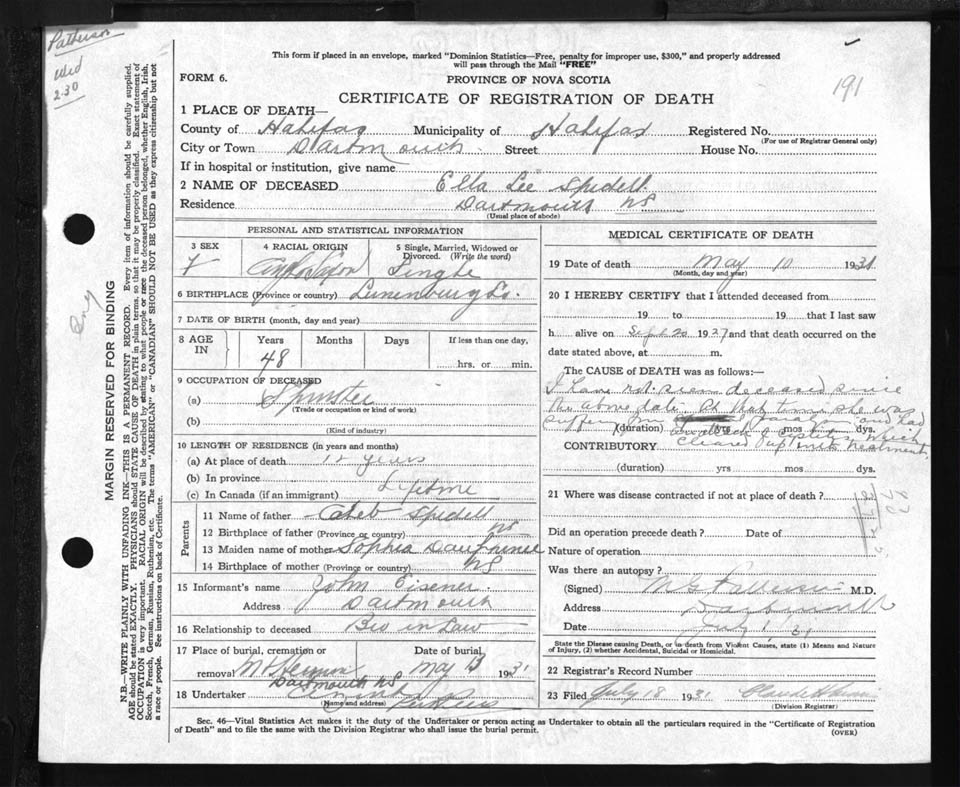 Patterson
Wed
2.30
191
This form if placed in an envelope, marked "Dominion Statistics—Free, penalty for improper use, $300," and properly addressed
will pass through the Mail "FREE"
FORM 6.
PROVINCE OF NOVA SCOTIA
CERTIFICATE OF REGISTRATION OF DEATH
1 PLACE OF DEATH—
County of Halifax Municipality of Halifax Registered No.
(For use of Registrar General only)
City or Town Dartmouth Street House No.
If in hospital or institution, give name
2 NAME OF DECEASED Ella Lee Spidell
Residence Dartmouth NS
(Usual place of abode)
PERSONAL AND STATISTICAL INFORMATION
3 SEX 4 RACIAL ORIGIN 5 Single, Married, Widowed or
Divorced. (Write the word)
F Anglo Saxon Single
6 BIRTHPLACE (Province or country) Lunenburg Co.
7 DATE OF BIRTH (month, day and year)
8 AGE IN Years Months Days If less than one day,
48 hrs. or min.
9 OCCUPATION OF DECEASED
(a) Spinster
(Trade or occupation or kind of work)
(b)
(Kind of industry)
10 LENGTH OF RESIDENCE (in years and months)
(a) At place of death 12 years
(b) In province
(c) In Canada (if an immigrant) Lifetime
Parents
11 Name of father Caleb Spidell
12 Birthplace of father (Province or country) NS
13 Maiden name of mother Sophia
14 Birthplace of mother (Province or country) NS
15 Informant's name John Eisener
Address Dartmouth
16 Relationship to deceased Bro in Law
17 Place of burial, cremation or Date of burial,
removal Mt Hermon May 13 1931
Dartmouth NS
18 Undertaker
(Name and address)
MEDICAL CERTIFICATE OF DEATH
19 Date of death May 10 1931
(Month, day and year)
20 I HEREBY CERTIFY that I attended deceased from
19 to 19 that I last saw
h alive on Sept 20 1927 and that death occurred on
date stated above, at m.
The CAUSE OF DEATH was as follows:
I have not seen deceased since
the above date. At that time she was
suffering from and had
(duration) yrs mos dys.
which
CONTRIBUTORY cleared up under treatment
(duration) yrs mos dys.
21 Where was disease contracted if not at place of death?
Did an operation precede death? Date of
Nature of operation
Was there an autopsy?
(Signed) M.D.
Address Dartmouth
Date July 1 31
State the Disease causing Death, or in death from Violent Causes, state (1) Means and Nature
of Injury, (2) whether Accidental, Suicidal or Homicidal.
22 Registrar's Record Number
23 Filed July 18 1931
(Division Registrar)
Sec. 46—Vital Statistics Act makes it the duty of the Undertaker or person acting as Undertaker to obtain all the particulars required in the "Certificate of Registration
of Death" and to file the same with the Division Registrar who shall issue the burial permit. (OVER)
MARGIN RESERVED FOR BINDING
N.B.—WRITE PLAINLY WITH UNFADING INK—THIS IS A PERMANENT RECORD. Every item of information should be carefully supplied.
AGE should be stated EXACTLY. PHYSICIANS should STATE CAUSE OF DEATH in plain terms, so that it may be properly classified. Exact statement of
OCCUPATION is very important. RACIAL ORIGIN will be described by stating to what people or race the deceased person belonged, whether English, Irish,
Scotch, French, German, Russian, Ruthenian, etc. The terms "AMERICAN" or "CANADIAN" SHOULD NOT BE USED as they express citizenship but not
a race or people. See instructions on back of Certificate.